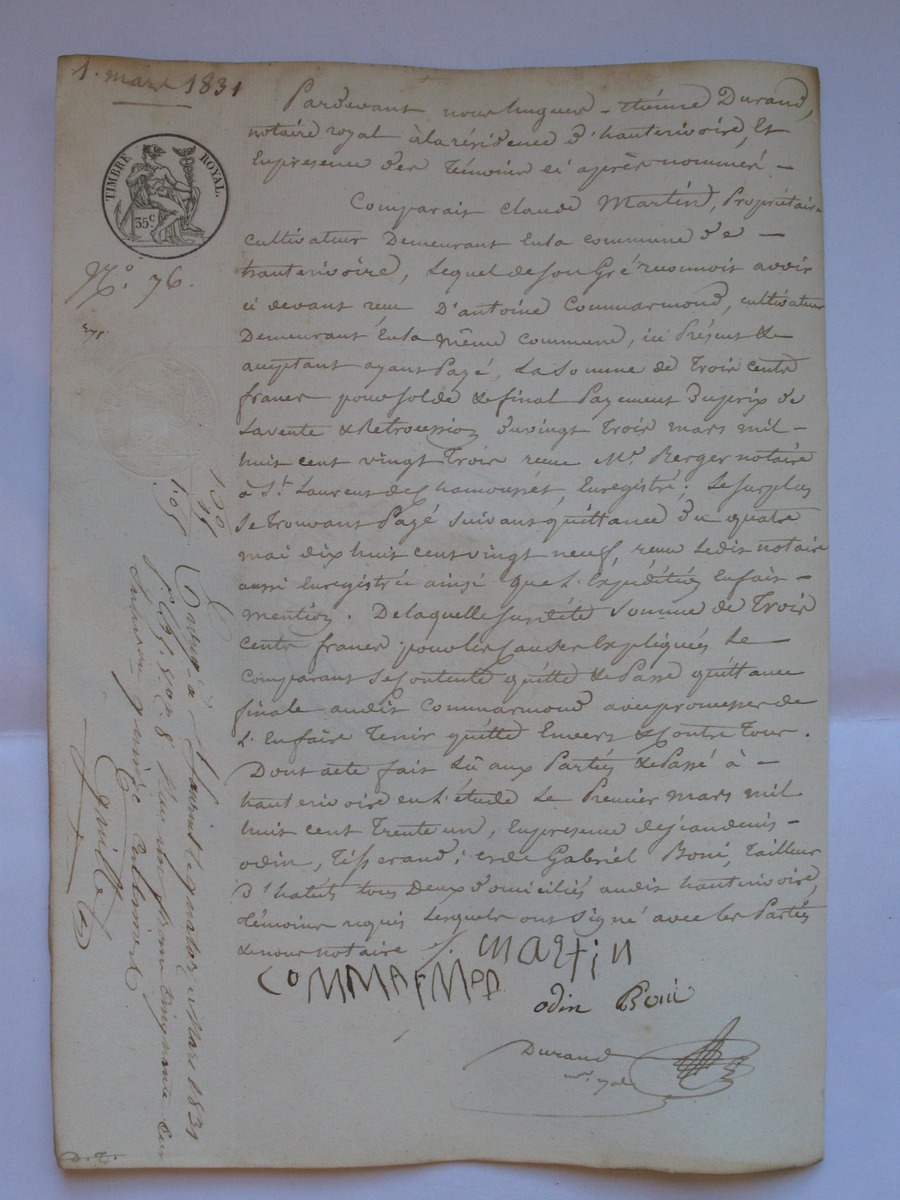 1. mars 1831
TIMBRE ROYAL.
35 c.
N.o 76.
Pardevant nous hugues-étienne Durand,
notaire royal à la résidence d'hauterivoire, Et
En présence des Témoins ci après nommés. –
Comparait Claude Martin, Propriétaire
cultivateur Demeurant En la commune de –
hauterivoire, Lequel de son Gré reconnoit avoir
ci devant reçu D'antoine Commarmond, cultivateur
Demeurant En la même commune, ici Présent &
acceptant ayant Payé, La Somme de Trois cents
francs pour solde & final Payement Du prix de
La vente & Retrocession Du vingt Trois mars mil –
huit cent vingt Trois reçue Me. Berger notaire
à St. Laurent de Chamousset, Enregistrée; Le surplus
se Trouvant Payé suivant quittance Du quatre
mai dix huit cent vingt neuf, reçue Ledit notaire
aussi Enregistrée ainsi que L'Expédition En fait –
mention. De laquelle susdite Somme de Trois
cents francs pour les causes Expliquées Le
Comparant Se contente quitte & Passe quittance
finale audit Commarmond avec promesses de
L'En faire Tenir quitte Envers & Contre Tous.
Dont acte fait Lû aux Parties & Passé à –
hauterivoire en L'étude Le Premier mars mil
huit cent Trente un, En présence de jean denis –
odin, Tisserand; et de Gabriel Boni, Tailleur
D'habits tous Deux Domiciliés audit hauterivoire,
Témoins requis Lesquels ont Signé avec les Parties
& nous notaire
Martin
COMMARMOD
odin Boni
Durand
nre. royal
à St. Laurent le quatorze Mars 1831